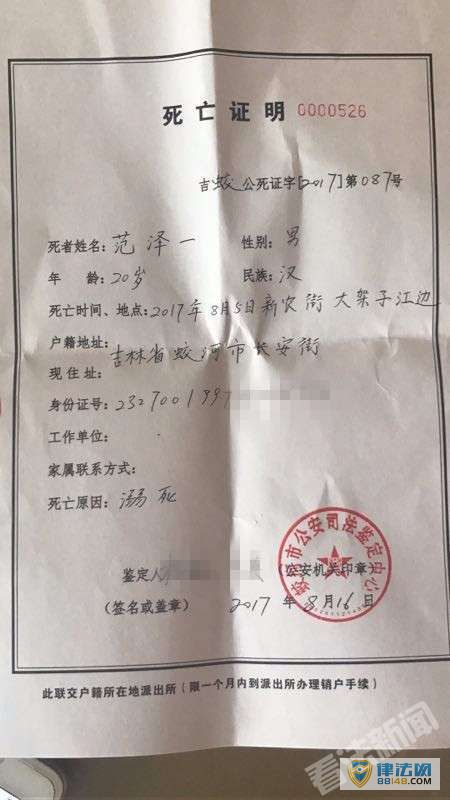 死亡证明 0000526
吉蛟公死证字[2017]第087号
死者姓名：范泽一 性别：男
年 龄：20岁 民族：汉
死亡时间、地点：2017年8月5日新农街 大架子江边
户籍地址：
吉林省蛟河市长安街
现 住 址：
身份证号：232700199
工作单位：
家属联系方式：
死亡原因：溺死
鉴定人 （公安机关印章）
蛟河市公安司法鉴定中心
（签名或盖章） 2017 年 8月16日
此联交户籍所在地派出所（限一个月内到派出所办理销户手续）
看法新闻
律法网
88148.COM